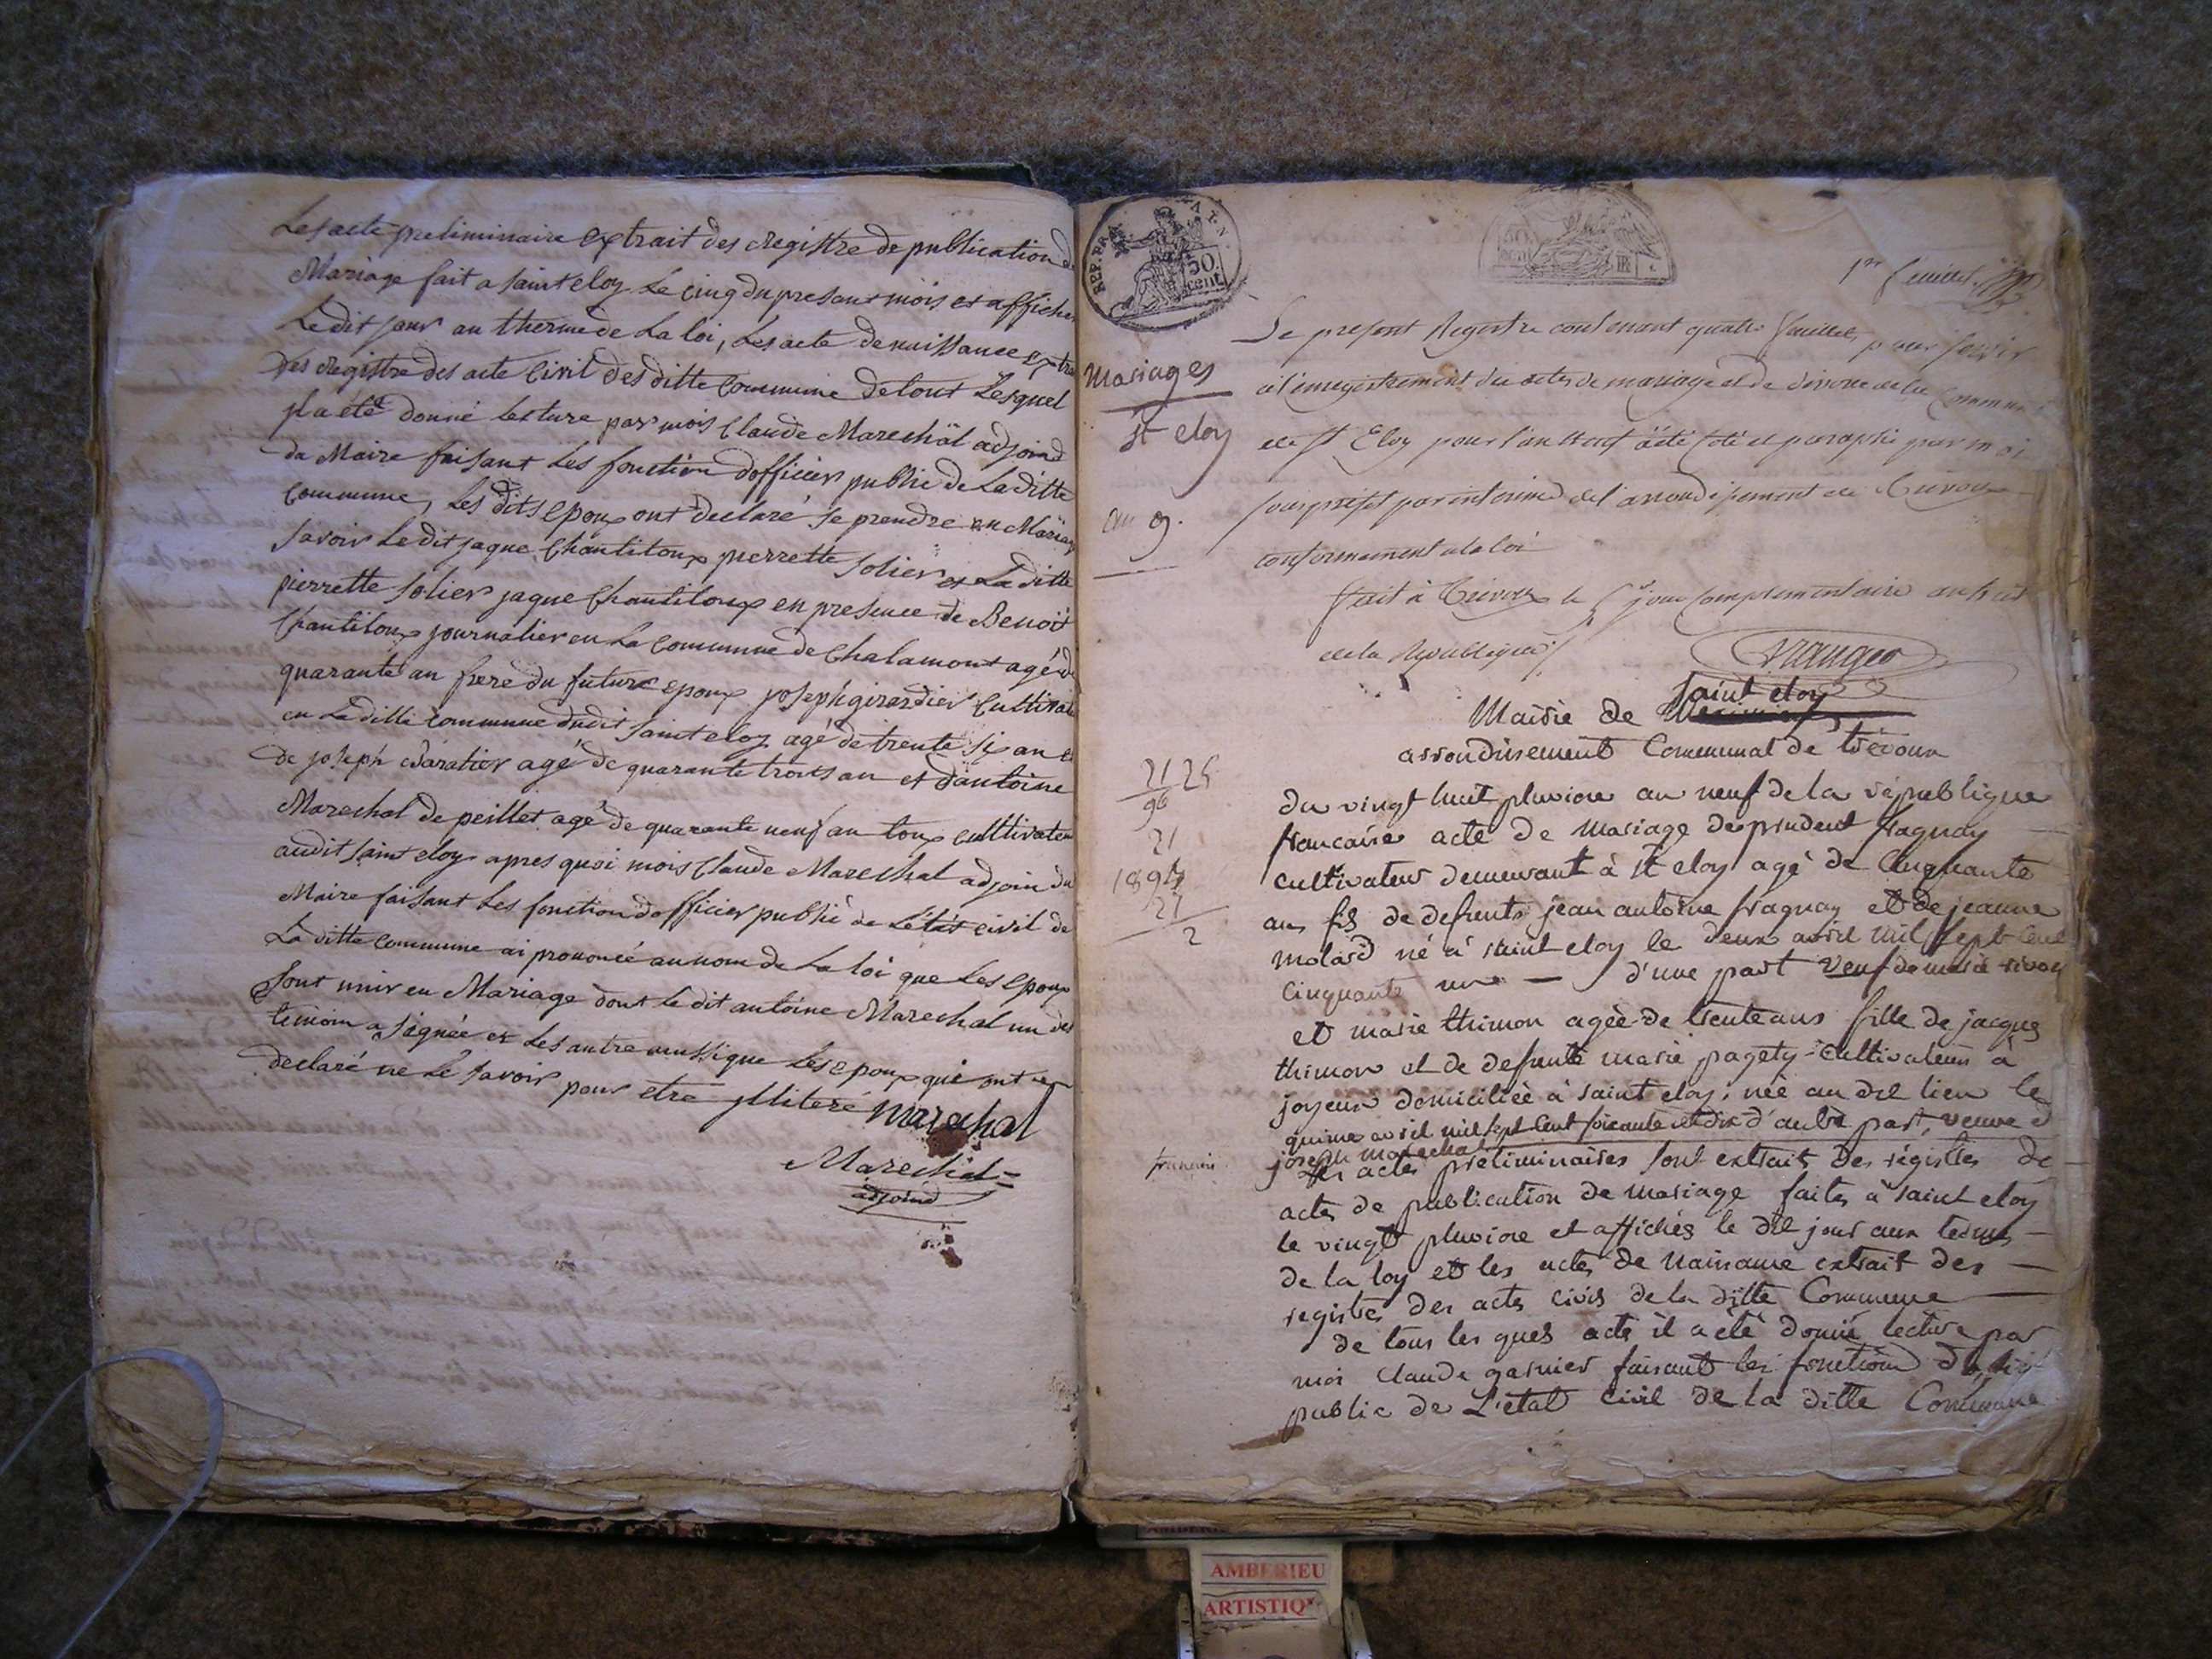 Les acte preliminaire extrait des registre de publication de
Mariage fait a saint eloy Le cinq du presant mois et affiches
Le dit jour au therme de La loi, Les acte de naissance extrai
des registre des acte Civil des ditte Commune de tout Lesquel
jl a été donné lecture par mois Claude Marechäl adjoind
du Maire faisant Les fonction dofficier public de La ditte
Commune, Les dits epoux ont declaré se prendre en Mariag
savoir Le dit jaque Chantiloup pierrette solier et La ditte
pierrette solier jaque Chantiloup en presence de Benoit
Chantiloup journalier en La Commune de Chalamont agé de
quarante an frere du future epoux joseph girardier Cultivate
en La ditte commune dudit saint eloy agé de trente six an et
de joseph agé de quarante trois an et dantoine
Marechal de peillet agé de quarante neuf an toux cultivateur
audit saint eloy apres quoi mois Claude Marechal adjoin du
Maire faisant Les fonction dofficier public de Létat civil de
La ditte commune ai prononcé au nom de La loi que Les epoux
sont unir en Mariage dont Le dit antoine Marechal un des
temoin a signée et Les autre Les epoux qui ont
declaré ne Le savoir pour etre jlliteré marechal
Marechal
adjoind
REP. FRA.
50
cent.
50
1er feuillet
Le present Registre contenant quatre feuillets pour servir
à l'enregistrement des actes de mariage et de divorce de la Commune
de St Eloy pour l'an neuf à été coté et paraphé par moi
sous prefet par interime de l'arrondissement de Trévoux
conformement a la loi
fait à Trevoux le 5e jour complementaire an huit
de la Republique
Mariages
st eloy
an 9.
saint eloy
Mairie de
arrondissement Communal de Trévoux
21 25
96
21
189
27
2
du vingt huit pluviose an neuf de la république
francaise acte de Mariage de prudent fraguay
cultivateur demeurant à st eloy agé de Cinquante
ans fils de defunts jean antoine fraguay et de jeanne
molard né à saint eloy le deux avril mil sept cent
cinquante un — d'une part veuf de marie
et marie thimon agée de trente ans fille de jacques
thimon et de defunte marie pagety cultivateur à
joyeux domiciliée à saint eloy; née au dit lieu le
quinze avril mil sept cent soixante et dix d'autre part, veuve d
joseph marechal
Les actes préliminaires sont extraits des régistres de
actes de publication de mariage faites à saint eloy
le vingt pluviose et affichés le dit jour aux termes
de la loy et les actes de naissance extrait des
registres des actes civils de la ditte Commune
de tous les quels acte il a été donné lecture par
moi Claude garnier faisant les fonctions d'officier
public de L'état Civil de la ditte Commune
AMBERIEU
ARTISTIQ